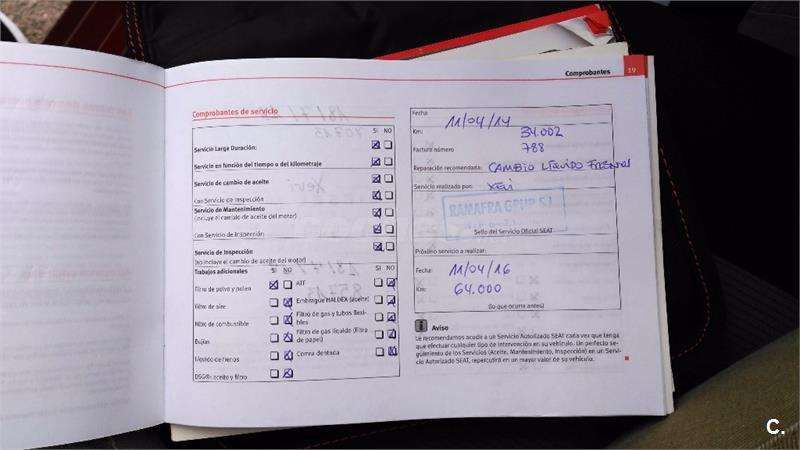 Comprobantes 19
Comprobantes de servicio
SI NO
Servicio Larga Duración:
Servicio en función del tiempo o del kilometraje
Servicio de cambio de aceite
Con Servicio de Inspección
Servicio de Mantenimiento
(incluye el cambio de aceite del motor)
Con Servicio de Inspección
Servicio de Inspección
(no incluye el cambio de aceite del motor)
Trabajos adicionales SI NO SI NO
Filtro de polvo y polen
ATF
Filtro de aire
Embrague HALDEX (aceite)
Filtro de combustible
Filtro de gas y tubos flexi-
bles
Bujías
Filtro de gas líquido (filtro
de papel)
Líquido de frenos
Correa dentada
DSG®: aceite y filtro
Fecha 11/04/14
Km: 34.002
Factura número 788
Reparación recomendada: CAMBIO LÍQUIDO
Servicio realizado por: Xevi
RAMAFRA GRUP S.L.
Sello del Servicio Oficial SEAT
Próximo servicio a realizar:
Fecha: 11/04/16
Km: 64.000
(lo que ocurra antes)
Aviso
Le recomendamos acuda a un Servicio Autorizado SEAT cada vez que tenga
que efectuar cualquier tipo de intervención en su vehículo. Un perfecto se-
guimiento de los Servicios (Aceite, Mantenimiento, Inspección) en un Servi-
cio Autorizado SEAT, repercutirá en un mayor valor de su vehículo.
C.